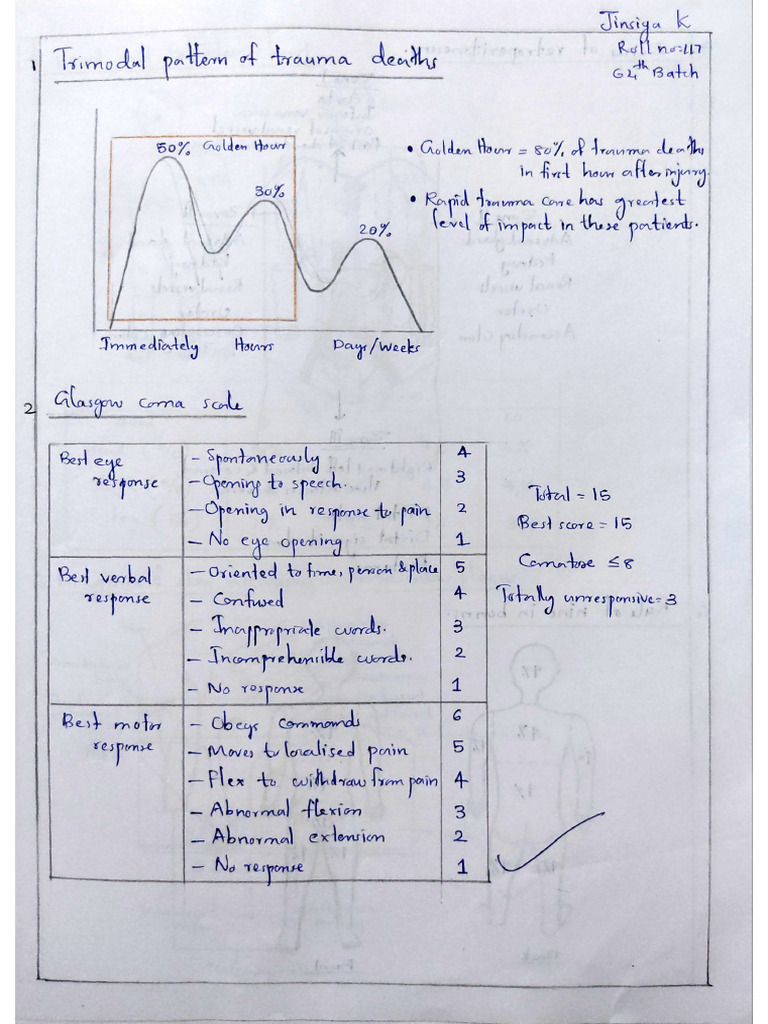 Jinsiya K
Roll no: 47
64th Batch
1 Trimodal pattern of trauma deaths
50% Golden Hour
30%
20%
Immediately Hours Days/Weeks
• Golden Hour = 80% of trauma deaths
in first hour after injury.
• Rapid trauma care has greatest
level of impact in these patients.
2 Glasgow coma scale
Best eye response
- Spontaneously 4
- Opening to speech. 3
- Opening in response to pain 2
- No eye opening 1
Best verbal response
- Oriented to time, person & place 5
- Confused 4
- Inappropriate words. 3
- Incomprehensible words. 2
- No response 1
Best motor response
- Obeys commands 6
- Moves to localised pain 5
- Flex to withdraw from pain 4
- Abnormal flexion 3
- Abnormal extension 2
- No response 1
Total = 15
Best score = 15
Comatose ≤ 8
Totally unresponsive = 3